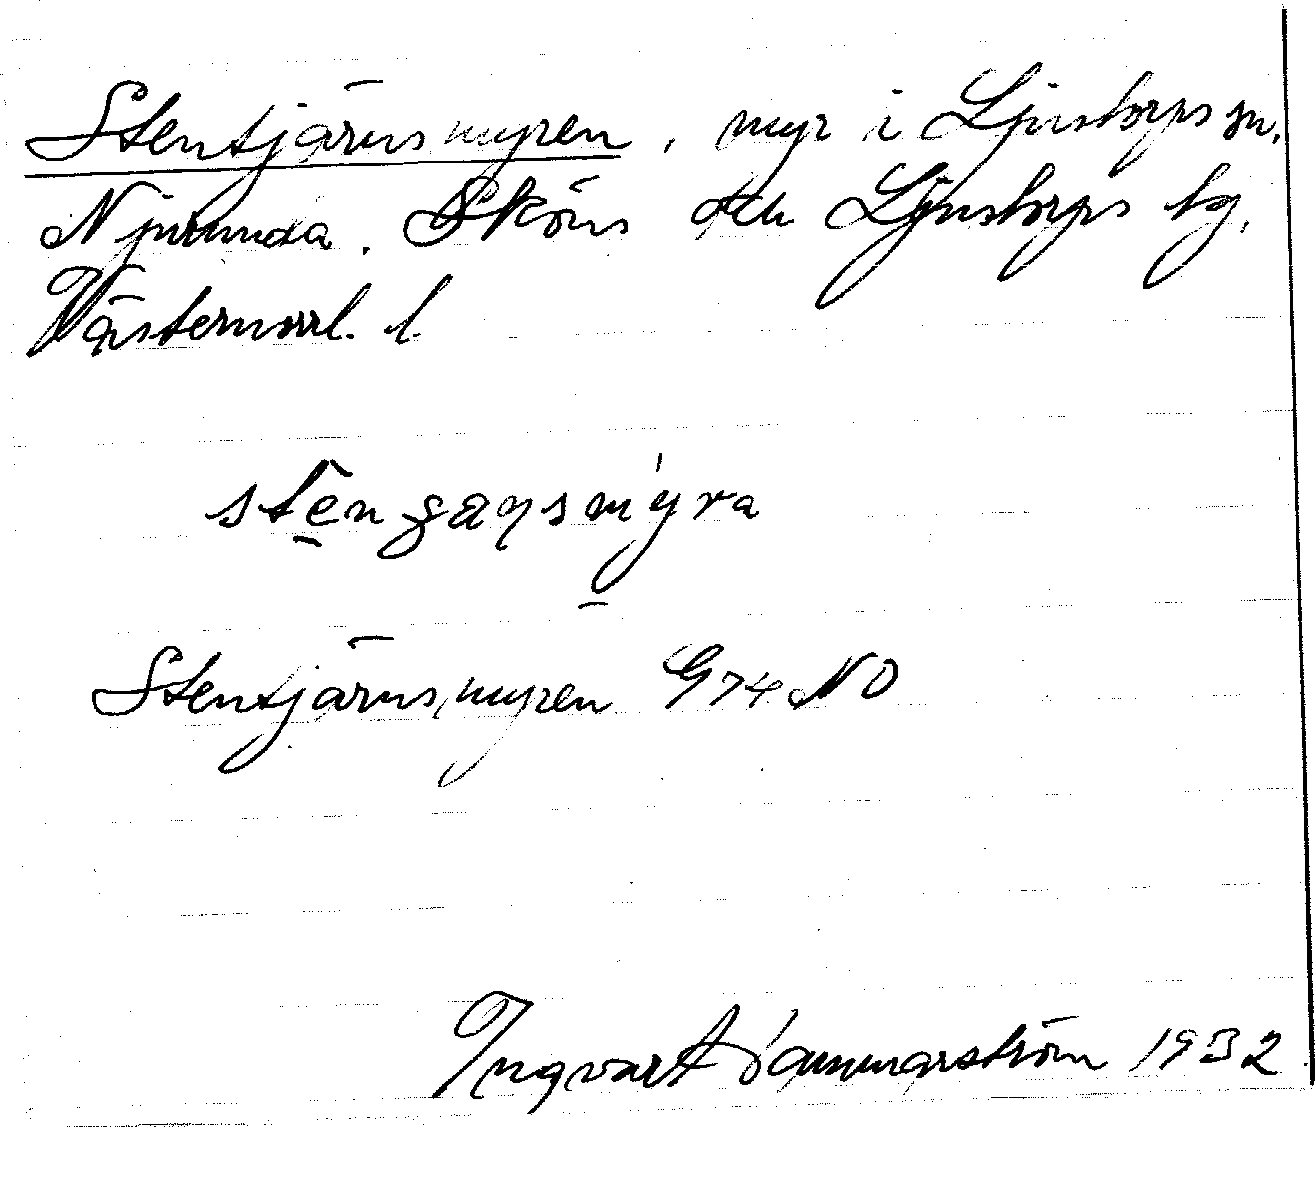 Stentjärnsmyren, myr i Ljustorps sn.
Njurunda, Sköns och Ljustorps tg.
Västernorrl. l.
stēn
Stentjärnsmyren G74 NO
Ingvart Hammarström 1932